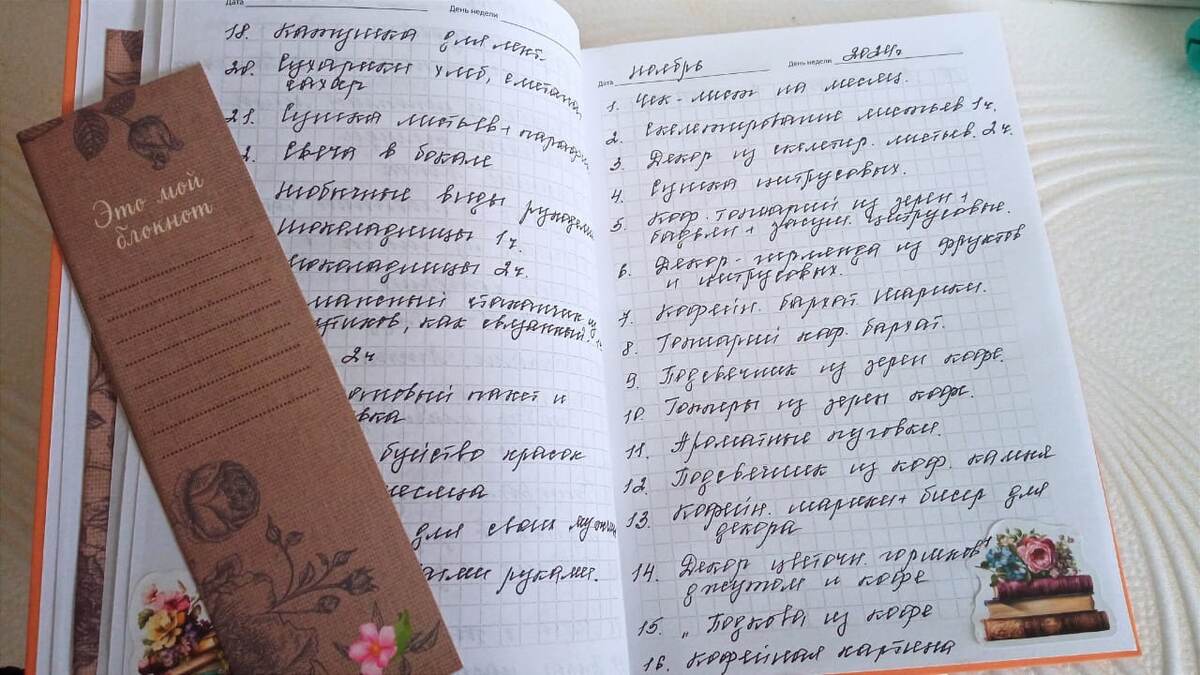 Дата День недели
18. Катушка для лент
20. Сухарики хлеб, сметана,
сахар
21. Сушка листьев +
2. Свеча в бокале
необычные виды рукодели
Шоколадницы 1ч.
Шоколадницы 2ч.
стаканчик из
как связанный. 1ч
2ч
пакет и
буйство красок
месяца
для своих
руками.
Это мой
блокнот
Дата ноябрь День недели 2024г
1. Чек-лист на месяц.
2. Скелетирование листьев 1ч.
3. Декор из скелетир. листьев. 2ч.
4. Сушка цитрусовых.
5. Коф. топиарий из зерен +
бадьян + засуш. цитрусовые.
6. Декор-гирлянда из фруктов
и цитрусовых.
7. Кофейн. бархат. шарики.
8. Топиарий коф. бархат.
9. Подсвечник из зерен кофе.
10. Топперы из зерен кофе.
11. Ароматные пуговки.
12. Подсвечник из коф. камня
13. Кофейн. шарики + бисер для
декора
14. Декор цветочн. горшков
джутом и кофе
15. „ Подкова из кофе
16. Кофейная картина